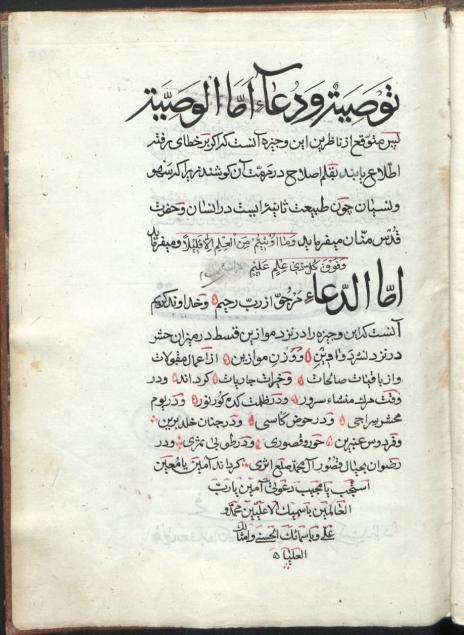 توصیة ودعاء اما الوصیة
پس متوقع از ناظرین این وجیزه آنست که اگر بر خطای رفته
اطلاع یابند بقلم اصلاح در جهت آن کوشند زیرا که سهو
ونسیان چون طبیعت ثانیه ایست در انسان وحضرت
قدس منان میفرماید وما اوتیتم من العلم الا قلیلا ومیفرماید
وفوق کل ذی علم علیم
اما الدعاء مرجو از رب رحیم وخداوند کریم
آنست که این وجیزه را در نزد موازین قسط در میزان حشر
در نزد نشر دواوین ووزن موازین از اعمال مقبولات
واز باقیات صالحات وخیرات جاریات گرداند ودر
وقت منشاء سرور ودر ظلمت کده گور نور ودر یوم
محشر سراجی ودر حوض کاسی ودر جنان خلد برین
وفردوس عنبرین حور وقصوری ودر طوبی ثمری ودر
رضوان آل محمد اثری گرداند آمین یا معین
استجب یا مجیب دعوتی آمین یا رب
العالمین باسمک الاعلی
علی وباسمائک الحسنی وامثالک
العلیا